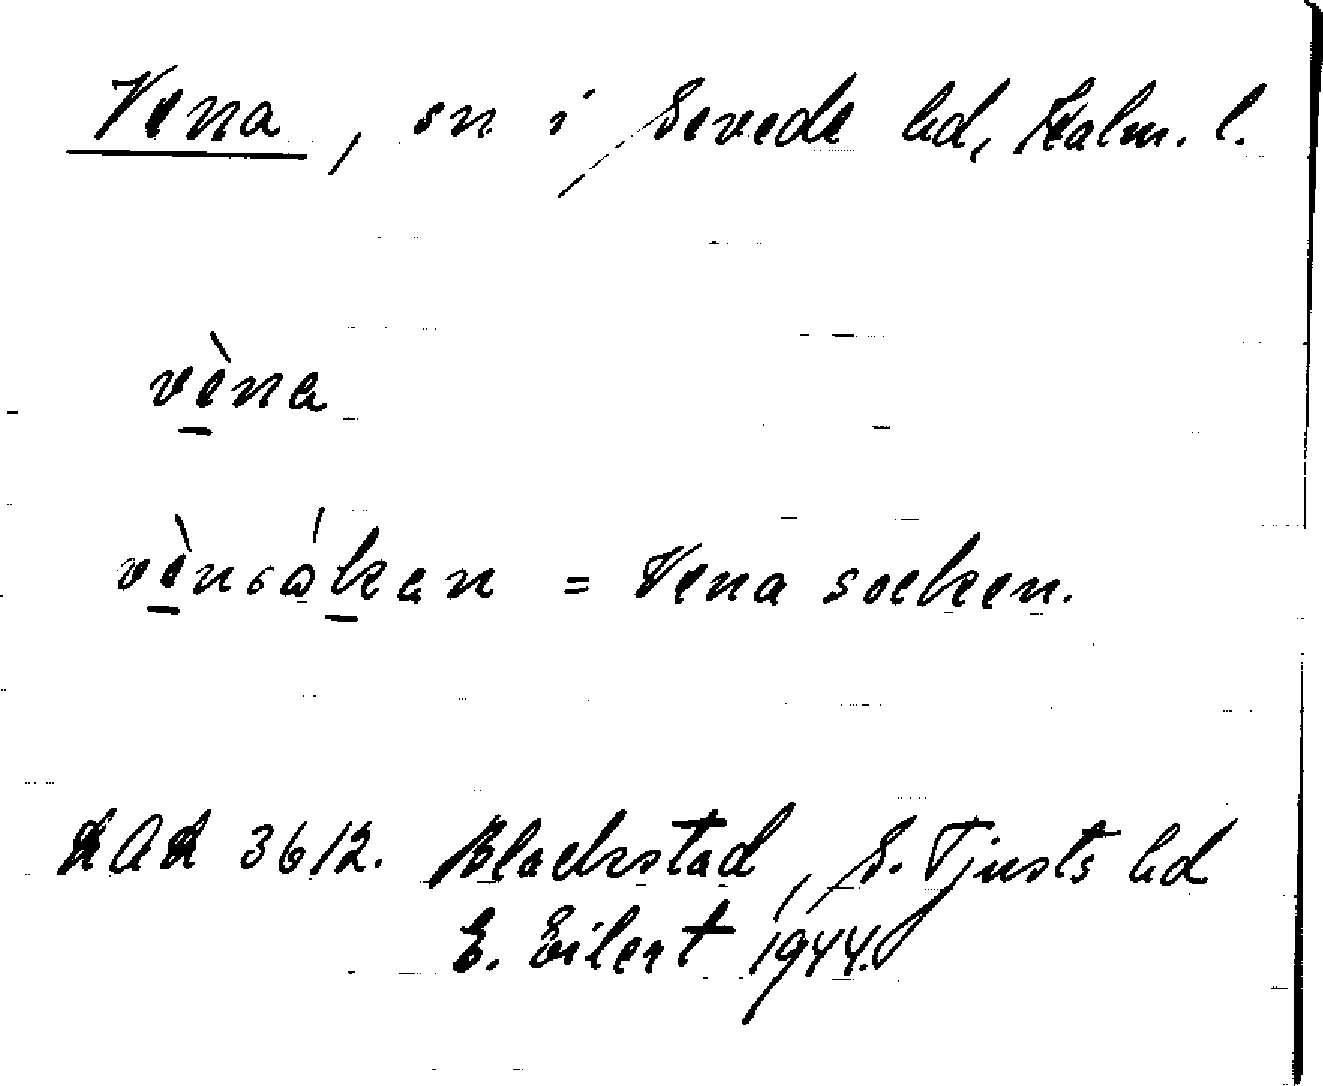 Vena, sn i Sevede hd, Kalm. l.
vèna
vènsåkan = Vena socken.
3612. Blackstad, S. Tjusts hd
E. Eilert 1944.